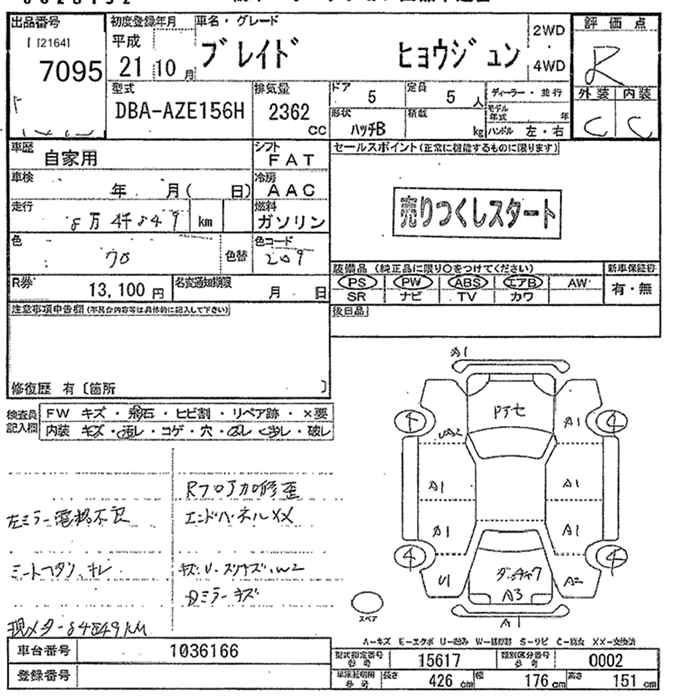 出品番号 初度登録年月 車名・グレード 2WD 評価点
[ [2164] 平成 ブレイド ヒョウジュン ・ R
7095 21 年 10 月 4WD
型式 排気量 ドア 5 定員 5 人 ディーラー・並行 外装 内装
DBA-AZE156H 2362 cc 形状 ハッチB 積載 kg モデル年式 年 C C
ハンドル 左・右
車歴 自家用 シフト FAT セールスポイント(正常に機能するものに限ります)
車検 年 月( 日) 冷房 AAC
走行 8万4千849 km 燃料 ガソリン 売りつくしスタート
色 クロ 色替 色コード 209
R券 13,100 円 名変通知期限 月 日 装備品 (純正品に限り○をつけてください) 新車保証書
PS PW ABS エアB AW 有・無
SR ナビ TV カワ
注意事項申告欄(不具合内容等は具体的に記入して下さい) 後日品
修復歴 有 [箇所 ]
検査員記入欄 FW キズ・飛石・ヒビ割・リペア跡・×要
内装 キズ・汚レ・コゲ・穴・スレ・破レ
A1
Pチセ
A1
A1
A1
A1
A1
U1
A2
A3
A1
Rフロア修歪
左ミラー電格不良 エンドパネルXX
シートヘタリ、キレ
Dミラーキズ
現メーター84849KM
スペア
A-キズ E-エクボ U-凹み W-補修跡 S-サビ C-腐食 XX-交換済
車台番号 1036166 型式指定番号 参考 15617 類別区分番号 参考 0002
登録番号 長さ 426 cm 幅 176 cm 高さ 151 cm